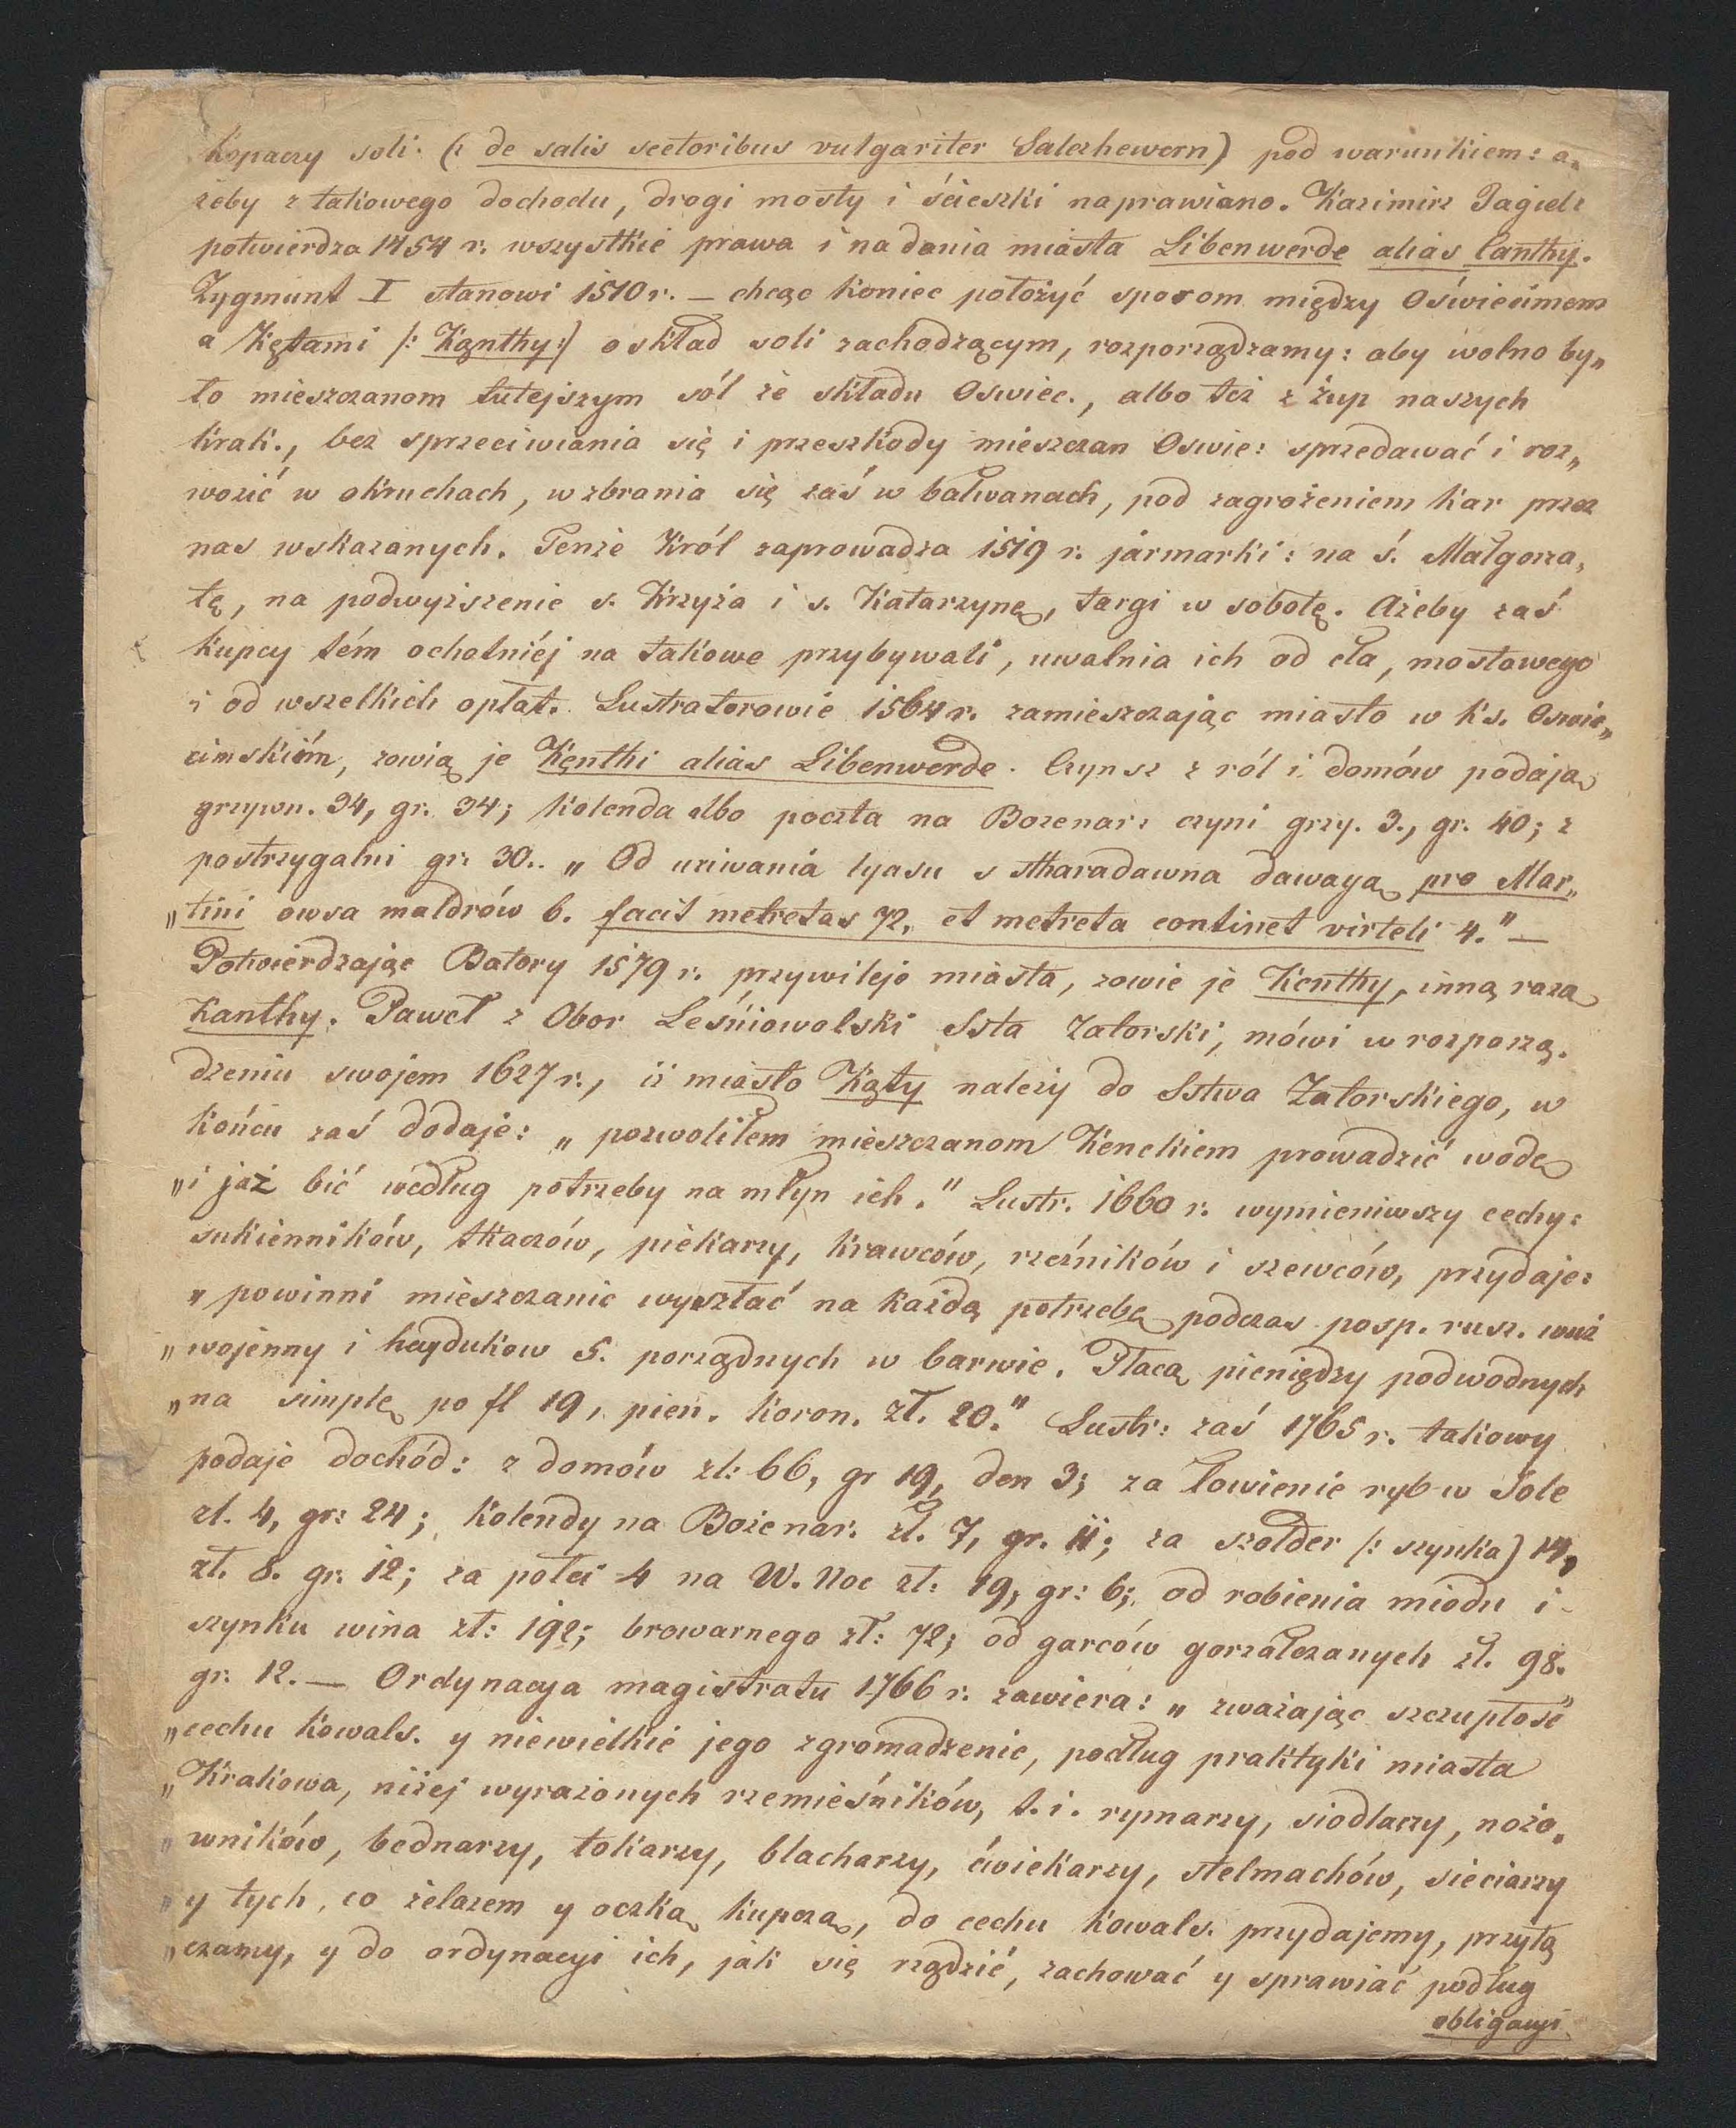 Kopaczy soli (: de salis sectoribus vulgariter Salczhewern) pod warunkiem: a„
żeby z takowego dochodu, drogi mosty i ścieszki naprawiano. Kazimirz Jagiel:
potwierdza 1454 r. wszystkie prawa i nadania miasta Libenwerde alias Canthy.
Zygmunt I stanowi 1510 r. — chcąc koniec położyć sporom między Oświecimem
a Kętami (: Kąnthy:) o skład soli zachodzącym, rozporządzamy: aby wolno by„
ło mieszczanom tutejszym sól ze składu Oswiec., albo też z żup naszych
krak., bez sprzeciwiania się i przeszkody mieszczan Oswie: sprzedawać i roz„
wozić w okruchach, wzbrania się zaś w bałwanach, pod zagrożeniem kar przez
nas wskazanych. Tenże Król zaprowadza 1519 r. jármarki: na ś. Małgorza„
tę, na podwyższenie s. Krzyża i s. Katarzynę, targi w sobotę. Ażeby zaś
kupcy tém ochotniéj na takowe przybywali, uwalnia ich od cła, mostowego
i od wszelkich opłat. Lustratorowie 1564 r. zamieszczając miasto w ks. Oswie„
cimskiém, zowią je Kęnthi alias Libenwerde. Czynsz z ról i domów podają
grzywn. 34, gr. 34; kolenda albo poczta na Bozenar: czyni grzy. 3., gr. 40; z
postrzygalni gr. 30.. „ Od uziwania lyasu s stharadawna dawayą pro Mar„
„tini owsa maldrów 6. facit metretas 72, et metreta continet virteli 4." —
Potwierdzając Batory 1579 r. przywileje miasta, zowie je Kenthy, inną razą
Kanthy. Paweł z Obor Leśniowolski Ssta Zatorski, mówi w rozporzą„
dzeniu swojem 1627 r., iż miasto Kąty należy do Sstwa Zatorskiego, w
końcu zaś dodaje: „ pozwoliłem mieszczanom Kenckiem prowadzić wodę
„i jaż bić według potrzeby na młyn ich." Lustr. 1660 r. wymieniwszy cechy:
sukienników, tkaczów, piekarzy, krawców, rzeźników i szewców, przydaje:
„ powinni mieszczanie wyszłać na każdą potrzebę podczas posp. rusz. wuz
„wojenny i haydukow 5. porządnych w barwie. Płacą pieniędzy podwodnych
„na simplę po fl 19, pien. koron. zł. 20." Lustr: zaś 1765 r. takowy
podaje dochód: z domów zł: 66, gr 19, den 3; za łowienie ryb w Sole
zł. 4, gr: 24; kolendy na Boże nar. zł. 7, gr. 11; za szołder (: szynka) 14,
zł. 8. gr. 12; za połci 4 na W. Noc zł: 19, gr: 6; od robienia miodu i
szynku wina zł: 192; browarnego zł: 72; od garców gorzałczanych zł. 98.
gr. 12. — Ordynacya magistratu 1766 r. zawiera: „ zważając szczupłość
„cechu kowals. y niewielkie jego zgromadzenie, podług praktyki miasta
„Krakowa, niżej wyrażonych rzemieśników, t. i. rymarzy, siodlarzy, nożo„
„wników, bednarzy, tokarzy, blacharzy, ćwiekarzy, stelmachów, sieciarzy
„y tych, co żelazem y oczką kupczą, do cechu kowals. przydajemy, przyłą
„czamy, y do ordynacyi ich, jak się rządzić, zachować y sprawiać podług
obligacyi